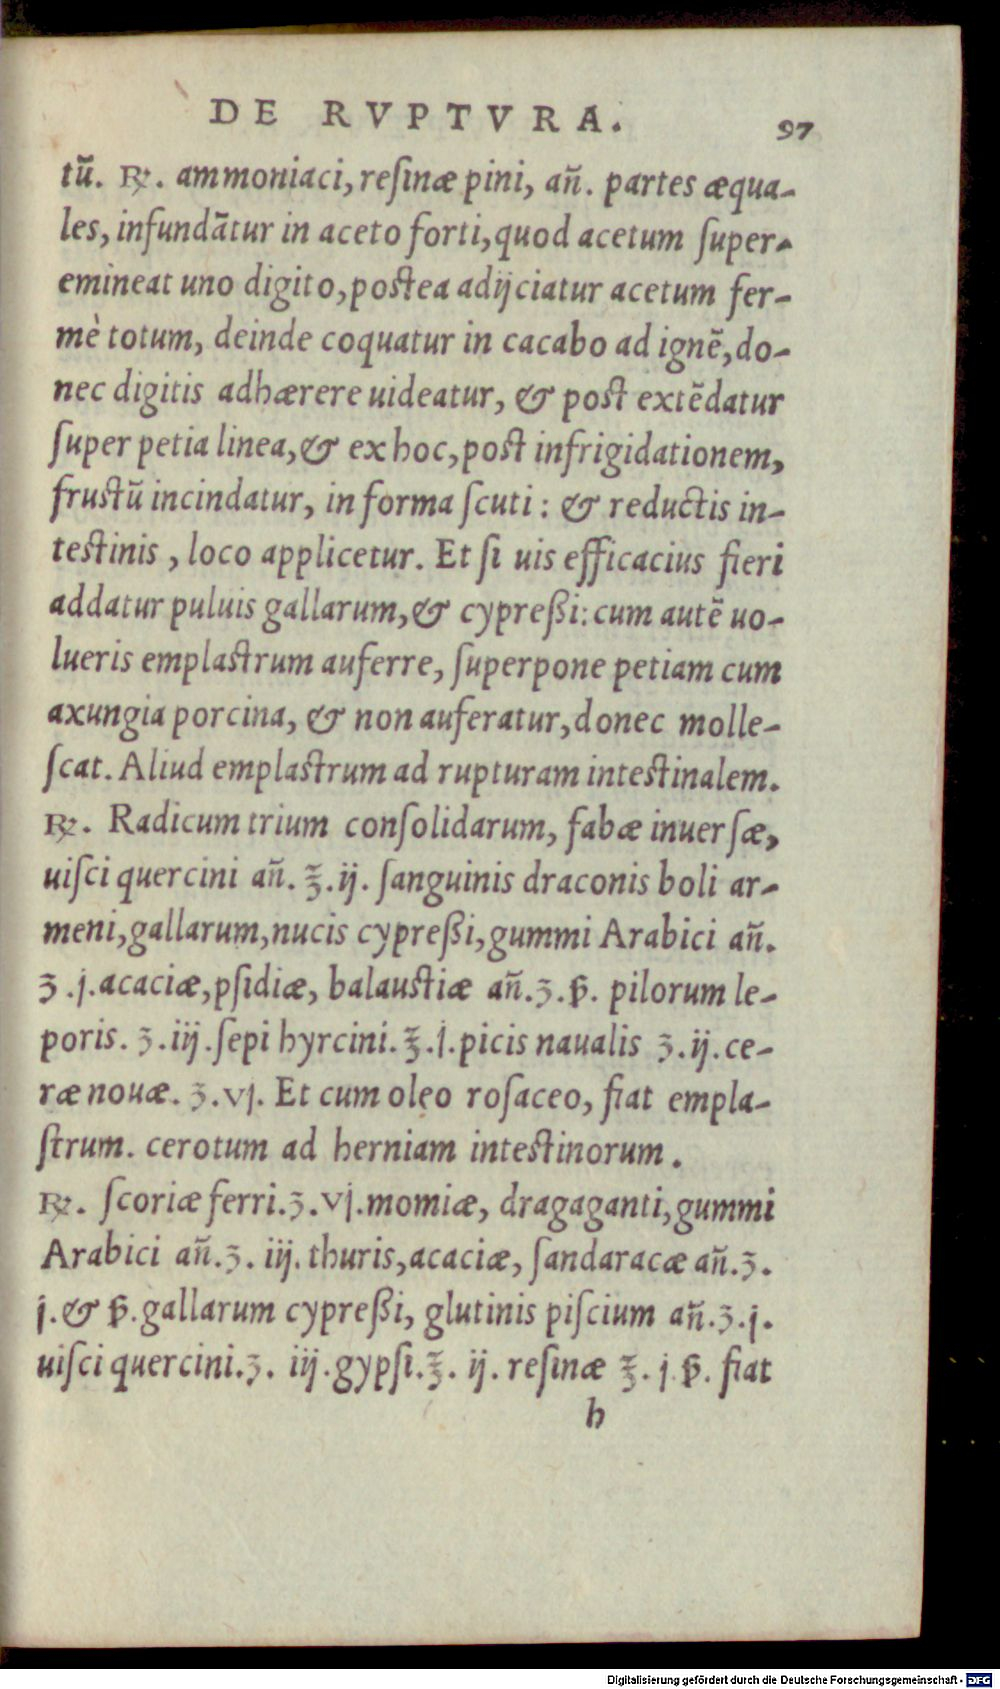 DE RVPTVRA. 97
tũ. ℞. ammoniaci, reſinæ pini, añ. partes æqua-
les, infundãtur in aceto forti, quod acetum ſuper-
emineat uno digito, poſtea adijciatur acetum fer-
mè totum, deinde coquatur in cacabo ad ignẽ, do-
nec digitis adhærere uideatur, & poſt extẽdatur
ſuper petia linea, & ex hoc, poſt infrigidationem,
fruſtũ incindatur, in forma ſcuti: & reductis in-
teſtinis, loco applicetur. Et ſi uis efficacius fieri
addatur puluis gallarum, & cypreßi: cum autẽ uo-
lueris emplaſtrum auferre, ſuperpone petiam cum
axungia porcina, & non auferatur, donec molle-
ſcat. Aliud emplaſtrum ad rupturam inteſtinalem.
℞. Radicum trium conſolidarum, fabæ inuerſæ,
uiſci quercini añ. ℥.ij. ſanguinis draconis boli ar-
meni, gallarum, nucis cypreßi, gummi Arabici añ.
ʒ.j. acaciæ, pſidiæ, balauſtiæ añ.ʒ.ß. pilorum le-
poris. ʒ.iij. ſepi hyrcini. ℥.j. picis naualis ʒ.ij. ce-
ræ nouæ. ʒ.vj. Et cum oleo roſaceo, fiat empla-
ſtrum. cerotum ad herniam inteſtinorum.
℞. ſcoriæ ferri.ʒ.vj. momiæ, dragaganti, gummi
Arabici añ.ʒ. iij. thuris, acaciæ, ſandaracæ añ.ʒ.
j. & ß. gallarum cypreßi, glutinis piſcium añ.ʒ.j.
uiſci quercini.ʒ. iij. gypſi.℥. ij. reſinæ ℥. j ß. fiat
h
Digitalisierung gefördert durch die Deutsche Forschungsgemeinschaft - DFG